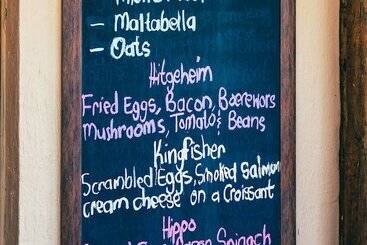 – Maltabella
– Oats
Hitgeheim
Fried Eggs, Bacon, Boerewors
Mushrooms, Tomato & Beans
Kingfisher
Scrambled Eggs, Smoked Salmon
cream cheese on a Croissant
Hippo
Spinach